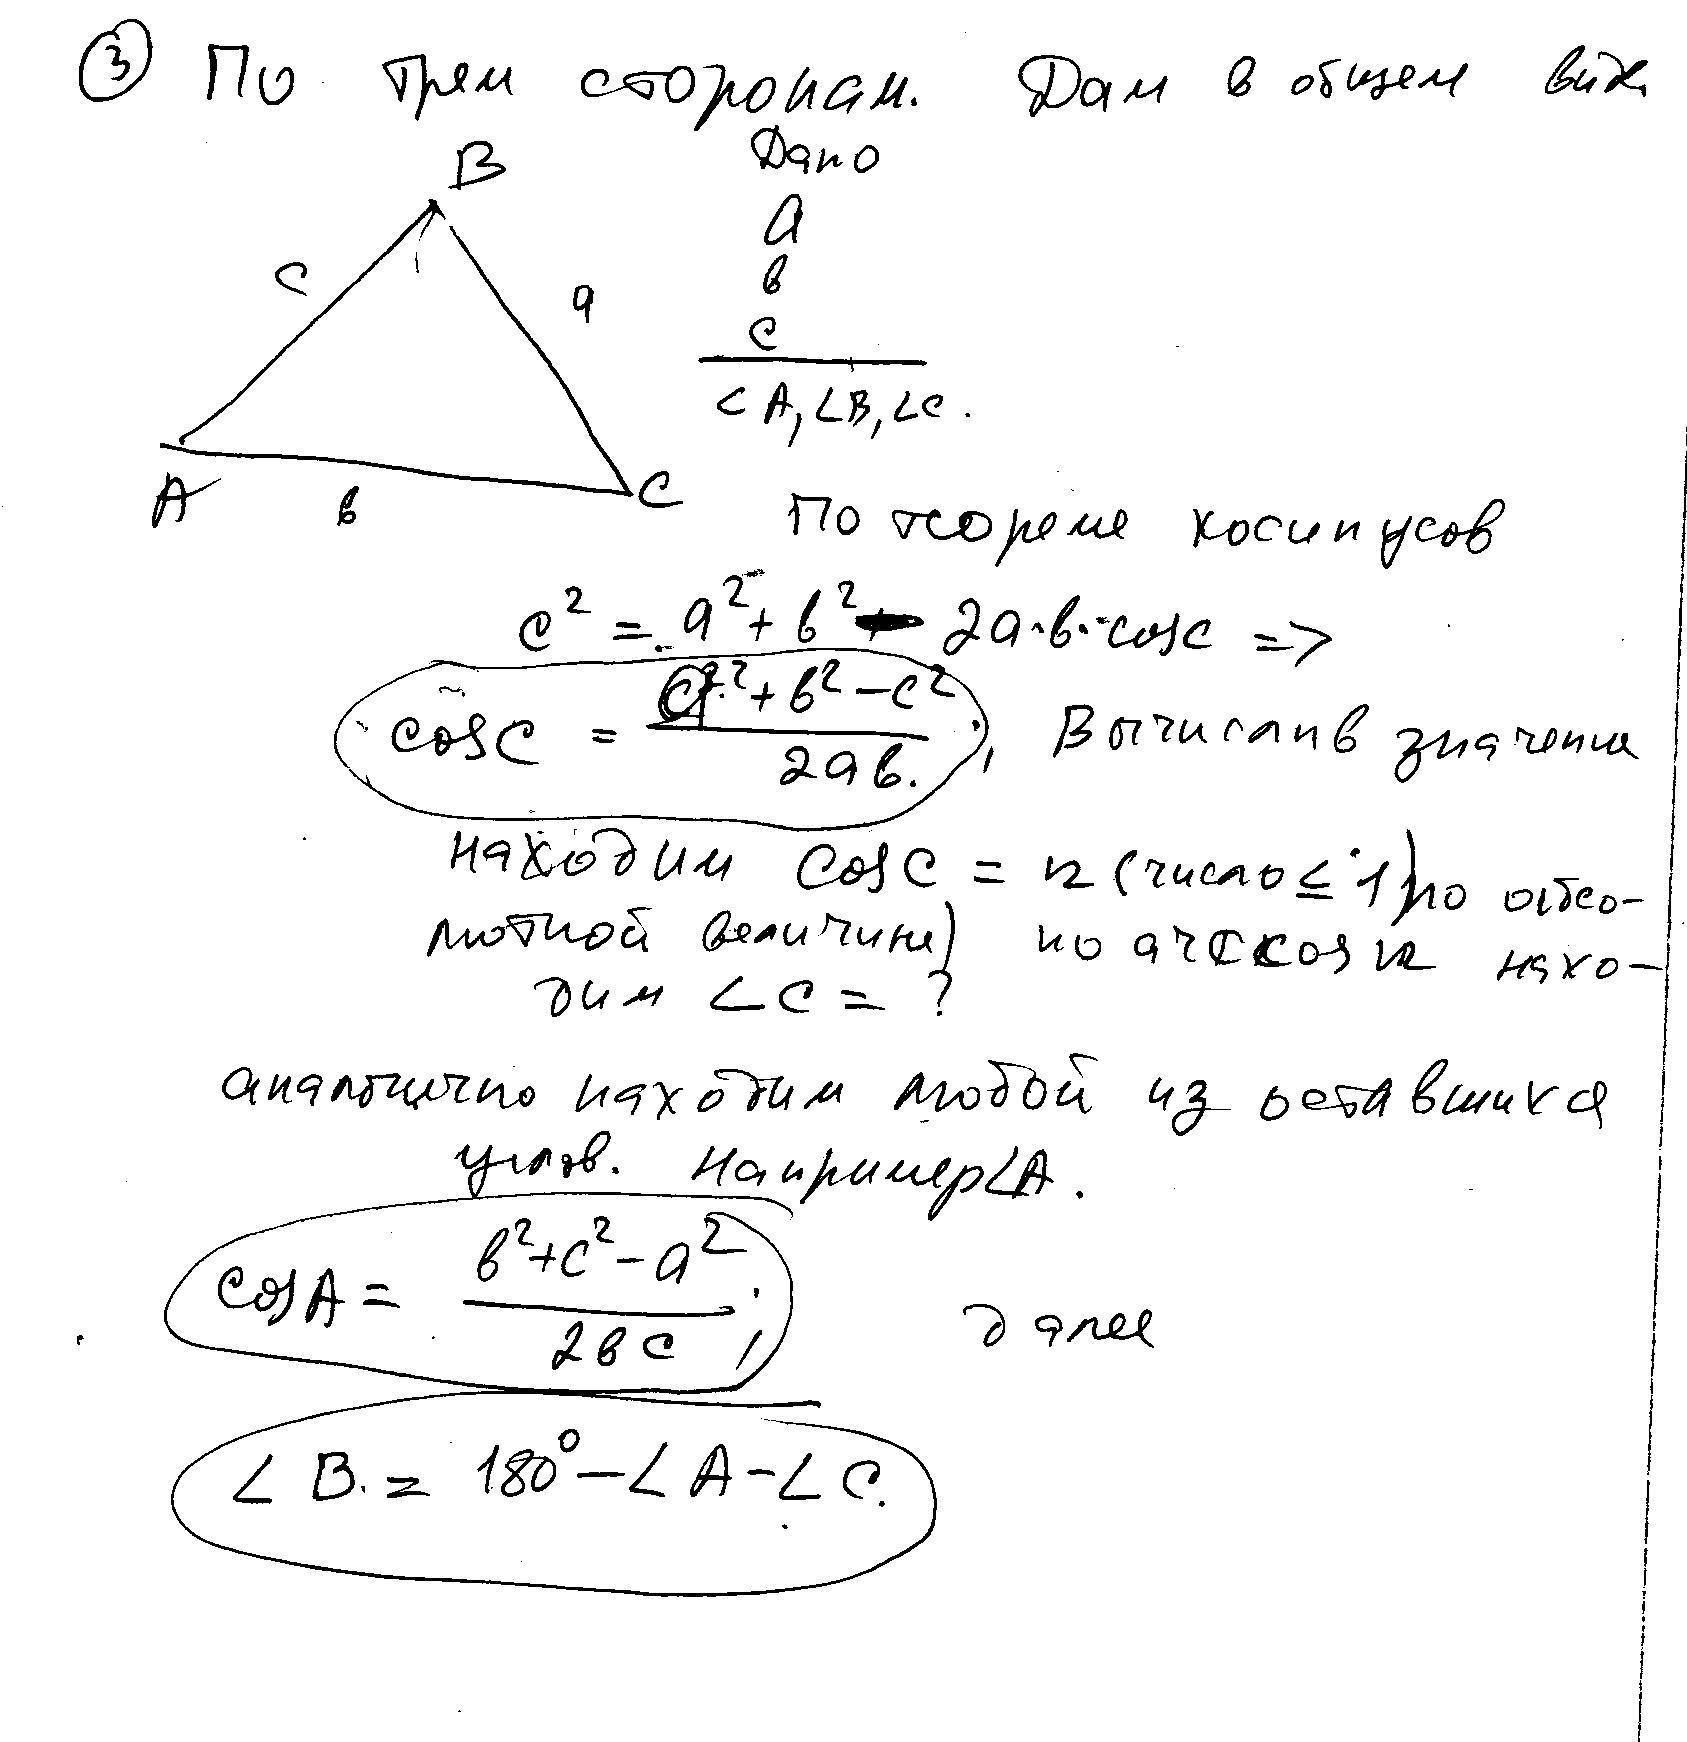 ③ По трем сторонам. Дам в общем виде
B
Дано
a
в
c
∠A, ∠B, ∠C.
c
a
A
в
C
По теореме косинусов
c² = a² + в² - 2a·в·cosC =>
cosC = (a² + в² - c²) / 2aв. ; Вычислив значение
находим cosC = n (число ≤ 1) по абсо-
лютной величине) по arccos n нахо-
дим ∠C = ?
аналогично находим любой из оставшихся
углов. Например ∠A.
cosA = (в² + c² - a²) / 2вc ; далее
∠B = 180° - ∠A - ∠C.